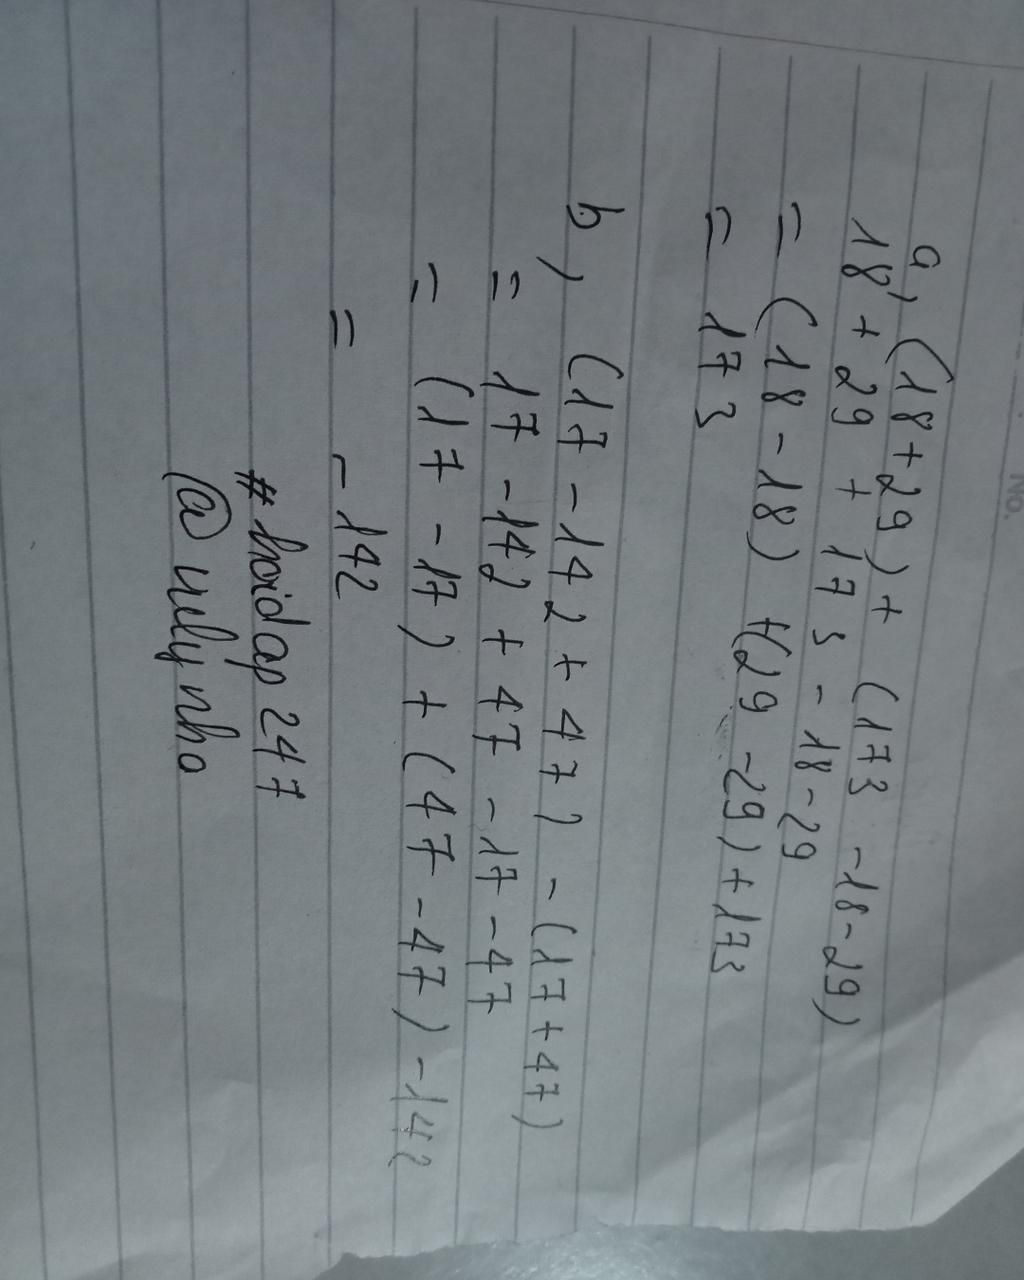 No.
a, (18+29)+ (173 -18-29)
18 + 29 + 173 - 18-29
= (18-18) +(29 -29)+173
= 173
b, (17-142+47) -(17+47)
= 17-142+47-17-47
= (17-17)+(47-47)-142
= -142
#hoidap247
@ nulynho